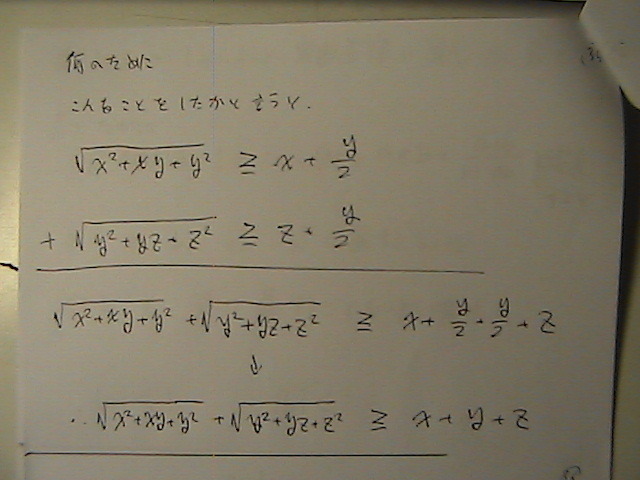 何のために
こんなことをしたかと言うと.
√x²+xy+y² ≧ x + y/2
+ √y²+yz+z² ≧ z + y/2
√x²+xy+y² + √y²+yz+z² ≧ x + y/2 + y/2 + z
↓
∴ √x²+xy+y² + √y²+yz+z² ≧ x + y + z